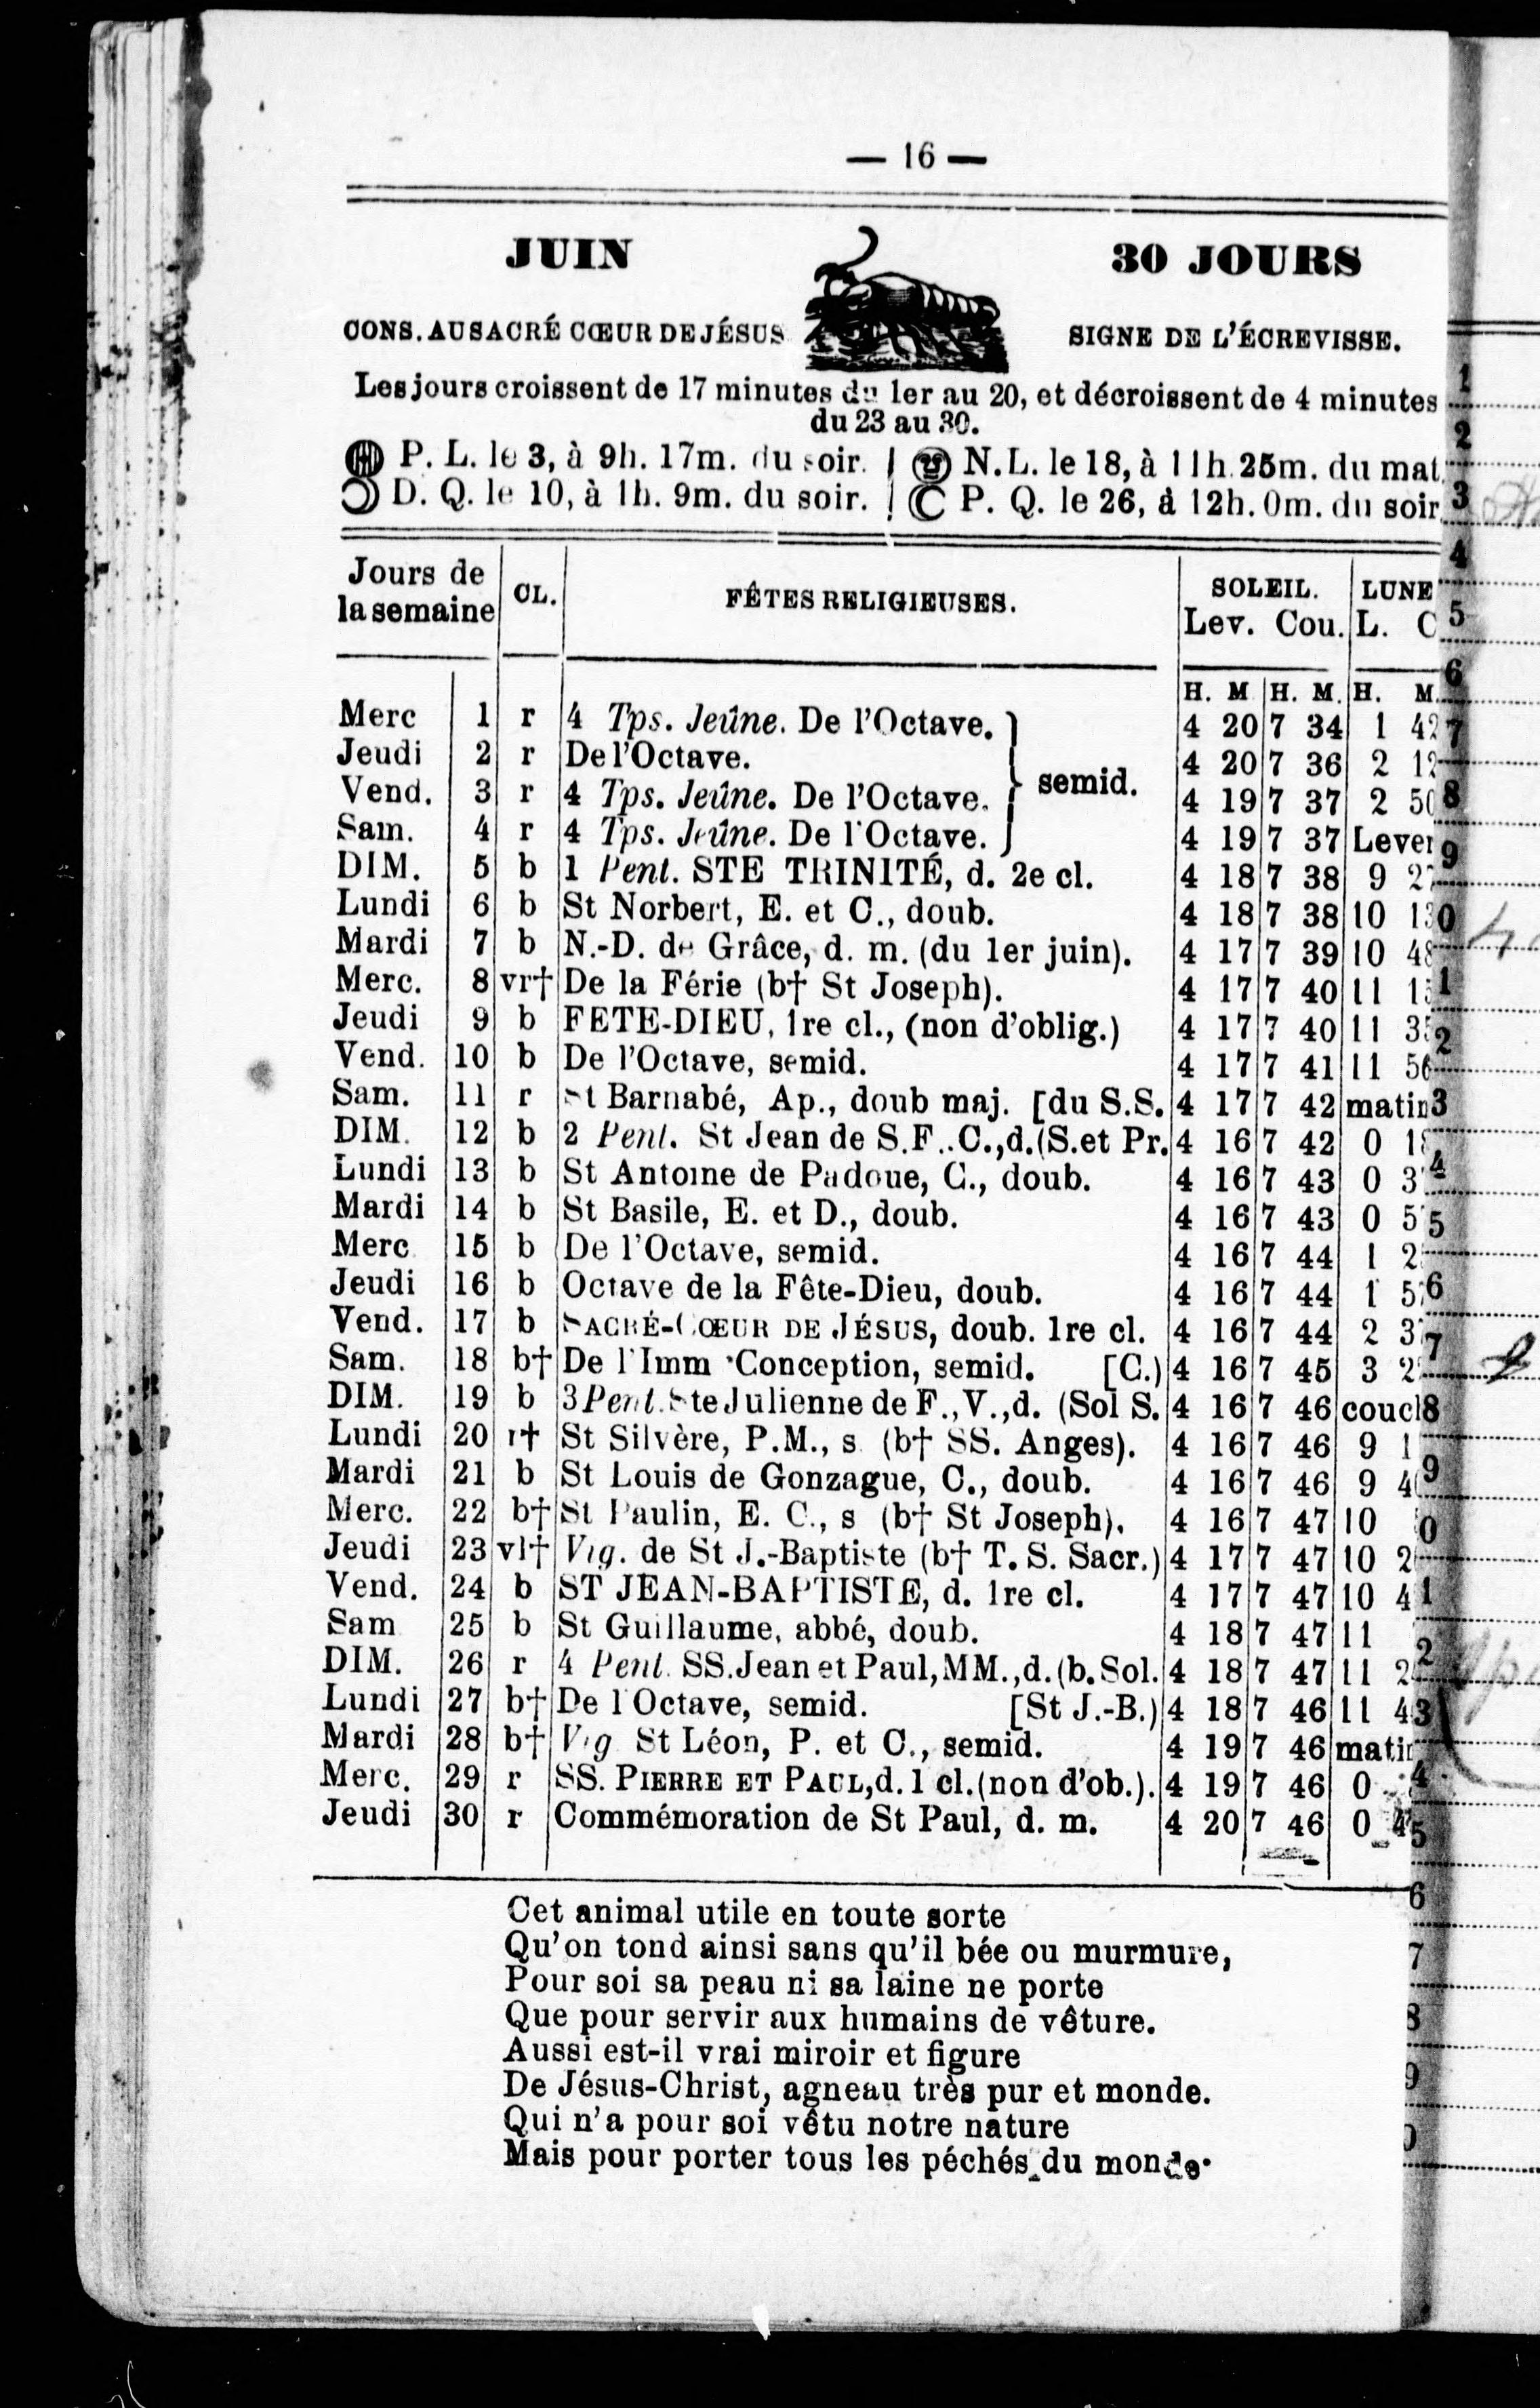 — 16 —
JUIN 30 JOURS
CONS. AU SACRÉ CŒUR DE JÉSUS SIGNE DE L'ÉCREVISSE.
Les jours croissent de 17 minutes du 1er au 20, et décroissent de 4 minutes
du 23 au 30.
P. L. le 3, à 9h. 17m. du soir. N. L. le 18, à 11h. 25m. du mat.
D. Q. le 10, à 1h. 9m. du soir. P. Q. le 26, à 12h. 0m. du soir
Jours de la semaine CL. FÊTES RELIGIEUSES. SOLEIL. Lev. Cou. LUNE L. C
H. M H. M. H. M.
Merc 1 r 4 Tps. Jeûne. De l'Octave. 4 20 7 34 1 42
Jeudi 2 r De l'Octave. 4 20 7 36 2 12
Vend. 3 r 4 Tps. Jeûne. De l'Octave. semid. 4 19 7 37 2 50
Sam. 4 r 4 Tps. Jeûne. De l'Octave. 4 19 7 37 Lever
DIM. 5 b 1 Pent. STE TRINITÉ, d. 2e cl. 4 18 7 38 9 27
Lundi 6 b St Norbert, E. et C., doub. 4 18 7 38 10
Mardi 7 b N.-D. de Grâce, d. m. (du 1er juin). 4 17 7 39 10 48
Merc. 8 vr† De la Férie (b† St Joseph). 4 17 7 40 11
Jeudi 9 b FETE-DIEU, 1re cl., (non d'oblig.) 4 17 7 40 11
Vend. 10 b De l'Octave, semid. 4 17 7 41 11 56
Sam. 11 r St Barnabé, Ap., doub maj. [du S.S. 4 17 7 42 matin
DIM. 12 b 2 Pent. St Jean de S.F..C.,d.(S.et Pr. 4 16 7 42 0
Lundi 13 b St Antoine de Padoue, C., doub. 4 16 7 43 0
Mardi 14 b St Basile, E. et D., doub. 4 16 7 43 0
Merc 15 b De l'Octave, semid. 4 16 7 44 1
Jeudi 16 b Octave de la Fête-Dieu, doub. 4 16 7 44 1
Vend. 17 b SACRÉ-CŒUR DE JÉSUS, doub. 1re cl. 4 16 7 44 2
Sam. 18 b† De l'Imm Conception, semid. [C.) 4 16 7 45 3
DIM. 19 b 3 Pent. Ste Julienne de F., V., d. (Sol S. 4 16 7 46 couc
Lundi 20 r† St Silvère, P.M., s (b† SS. Anges). 4 16 7 46 9
Mardi 21 b St Louis de Gonzague, C., doub. 4 16 7 46 9
Merc. 22 b† St Paulin, E. C., s (b† St Joseph). 4 16 7 47 10
Jeudi 23 vl† Vig. de St J.-Baptiste (b† T. S. Sacr.) 4 17 7 47 10
Vend. 24 b ST JEAN-BAPTISTE, d. 1re cl. 4 17 7 47 10
Sam 25 b St Guillaume, abbé, doub. 4 18 7 47 11
DIM. 26 r 4 Pent. SS. Jean et Paul, MM., d. (b. Sol. 4 18 7 47 11
Lundi 27 b† De l'Octave, semid. [St J.-B.) 4 18 7 46 11
Mardi 28 b† Vig St Léon, P. et C., semid. 4 19 7 46 matin
Merc. 29 r SS. PIERRE ET PAUL, d. 1 cl. (non d'ob.). 4 19 7 46 0
Jeudi 30 r Commémoration de St Paul, d. m. 4 20 7 46 0
Cet animal utile en toute sorte
Qu'on tond ainsi sans qu'il bée ou murmure,
Pour soi sa peau ni sa laine ne porte
Que pour servir aux humains de vêture.
Aussi est-il vrai miroir et figure
De Jésus-Christ, agneau très pur et monde.
Qui n'a pour soi vêtu notre nature
Mais pour porter tous les péchés du monde.